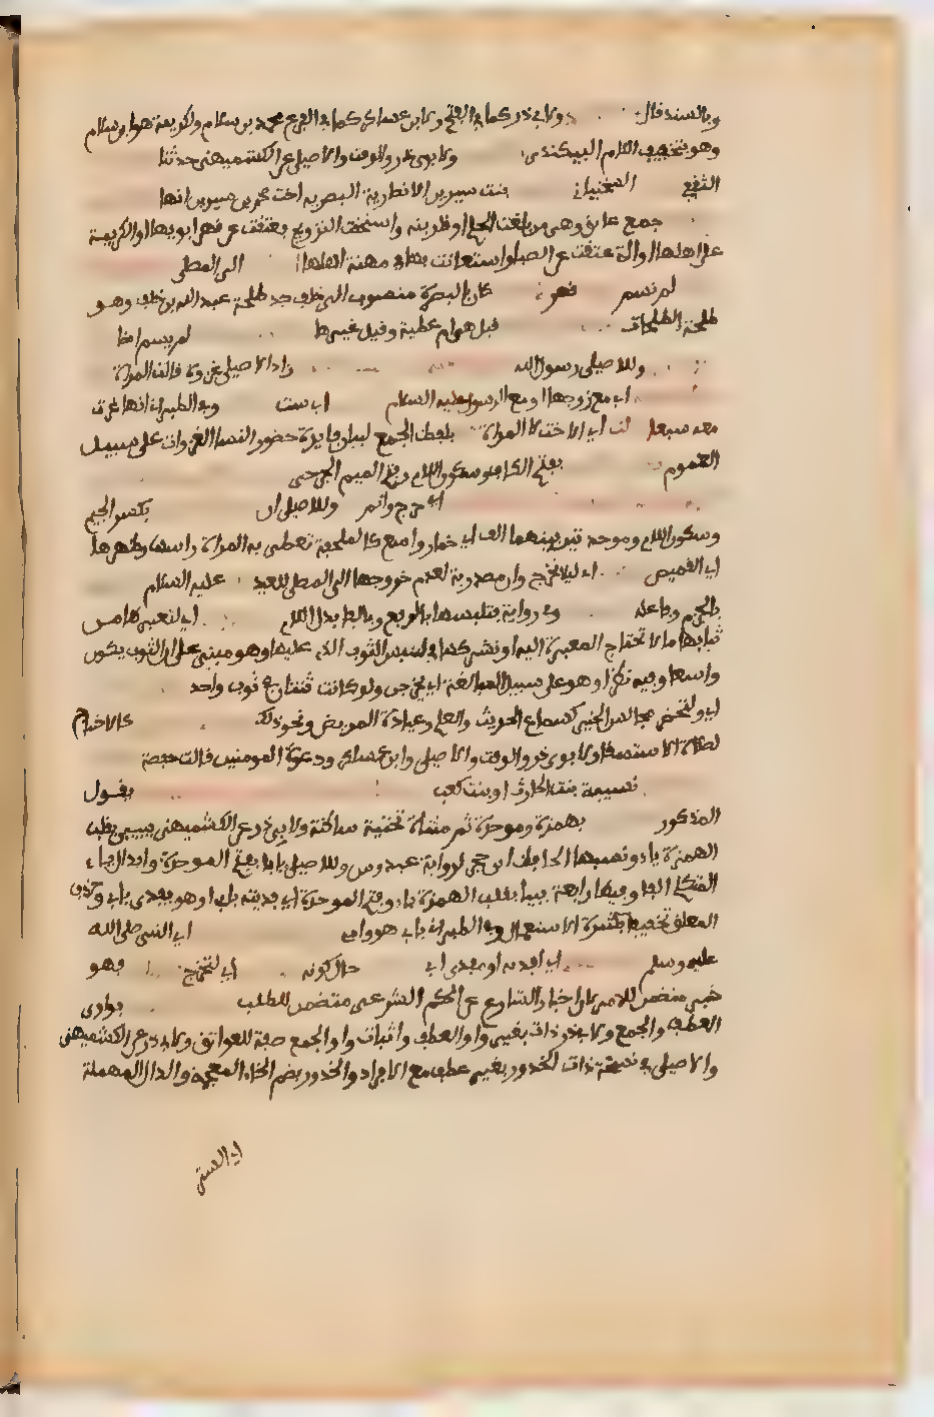 وبالسند قال ولابي ذر كما في الفتح ولابن عساكر كما في الفرع محمد بن سلام ولكريمة هو ابن سلام
وهو بتخفيف اللام البيكندي ولابوي ذر والوقت والاصيلي عن الكشميهني حدثنا
الثقفي السختياني بنت سيرين الانصارية البصرية اخت محمد بن سيرين انها
جمع عاتق وهي من بلغت الحلم او قاربته واستحقت التزويج فعتقت عن قهر ابويها او الكريمة
على اهلها او التي عتقت عن الصبا واستعانت بها في مهنة اهلها الى المصلى
لم تسم كان بالبصرة منسوب الى خلف جد طلحة بن عبد الله بن خلف وهو
طلحة الطلحات قيل هي ام عطية وقيل غيرها لم يسم ايضا
وللاصيلي رسول الله زاد الاصيلي غزوة قالت المراة
اي مع زوجها او مع الرسول عليه السلام اي ست وفي الطبراني انها غزت
معه سبعا اي الاخت لا المراة بلفظ الجمع لبيان فايدة حضور النسا الغزوات على سبيل
العموم بفتح الكاف وسكون اللام وفتح الميم الجرحى
اي حرج واثم وللاصيلي ان بكسر الجيم
وسكون اللام وموحدتين بينهما الف اي خمار واسع كالملحفة تغطي به المراة راسها وظهرها
اي القميص اي ليلا تخرج وان مصدرية لعدم خروجها الى المصلى للعيد عليه السلام
بالجزم وفاعله وفي رواية فتلبسها بالرفع وبالفا بدل اللام اي لتعيرها من
ثيابها ما لا تحتاج المعيرة اليه او تشركها في لبس الثوب الذي عليها وهو مبني على ان الثوب يكون
واسعا وفيه نظر او هو على سبيل المبالغة اي يخرجن ولو كانت ثنتان في ثوب واحد
اي ولتحضر مجالس الخير كسماع الحديث والعلم وعيادة المريض ونحو ذلك كالاجتماع
لصلاة الاستسقا ولابوي ذر والوقت والاصيلي وابن عساكر ودعوة المومنين قالت حفصة
نسيبة بنت الحارث او بنت كعب يقول
المذكور بهمزة وموحدة ثم مثناة تحتية ساكنة ولابي ذر عن الكشميهني بيبي بقلب
الهمزة ياء ونسبها الحافظ ابن حجر لرواية عبدوس وللاصيلي بابا بفتح الموحدة وابدال ياء
المتكلم الفا وفيها رابعة بيبا بقلب الهمزة ياء وفتح الموحدة اي فديته بابي او هو مفدى بابي وحذف
المعلق تخفيفا لكثرة الاستعمال وفي الطبراني بابي هو وامي اي النبي صلى الله
عليه وسلم اي افديه او مفدى بابي حال كونه اي لتخرج وهو
خبر متضمن للامر لان اخبار الشارع عن الحكم الشرعي متضمن للطلب بواوي
العطف والجمع ولابي ذر ذات بغير واو العطف واثبات واو الجمع صفة للعواتق ولابي ذر عن الكشميهني
والاصيلي في نسخة ذات الخدور بغير عطف مع الافراد والخدور بضم الخاء المعجمة والدال المهملة
اي الستر